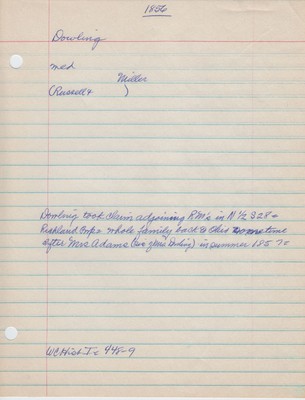 1856
Dowling
med
Miller
(Russell & )
Dowling took claim adjoining RM's in N 1/2 S28 -
Richland Twp - whole family back to Ohio
after Mrs Adams (nee Dowling) in summer 1857 -
WC Hist I = 448-9